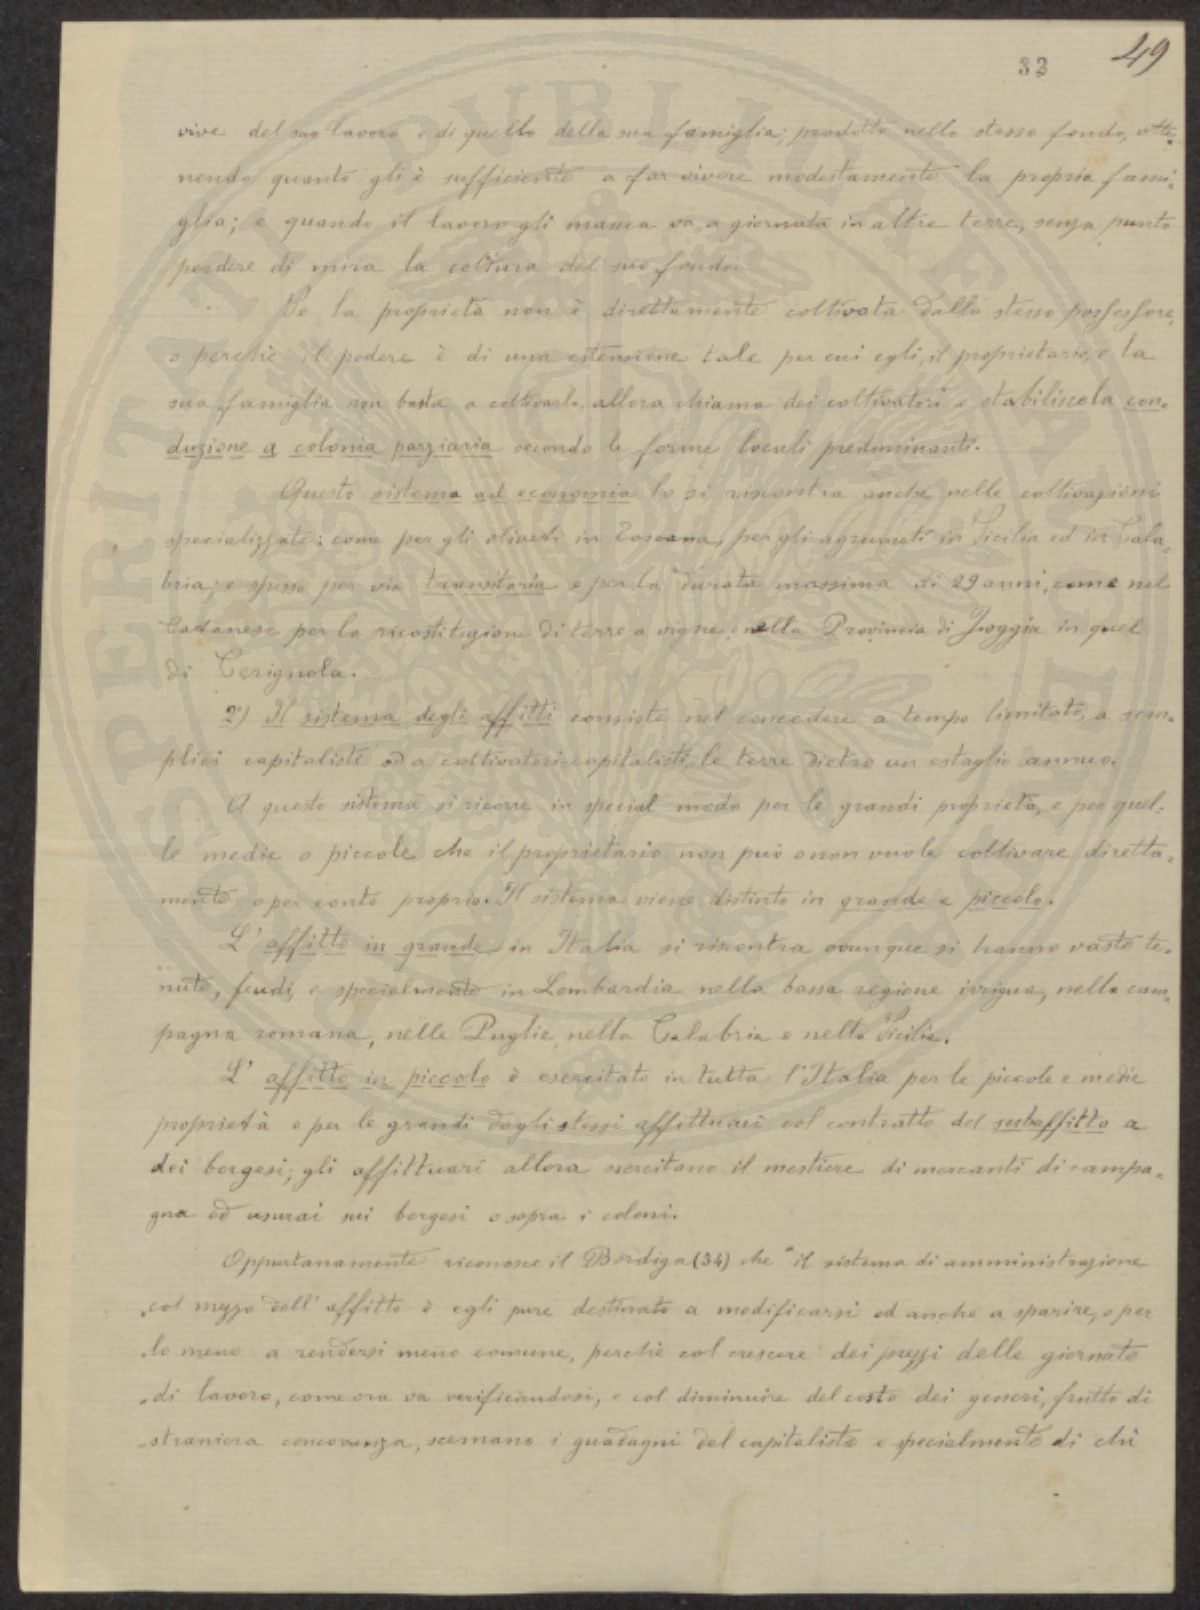 33 49
vive del suo lavoro e di quello della sua famiglia; prodotto nello stesso fondo, otte-
nendo quanto gli è sufficiente a far vivere modestamente la propria fami-
glia; e quando il lavoro gli manca va a giornata in altre terre, senza punto
perdere di mira la coltura del suo fondo.
Se la proprietà non è direttamente coltivata dallo stesso possessore,
o perchè il podere è di una estensione tale per cui egli, il proprietario, e la
sua famiglia non basta a coltivarlo, allora chiama dei coltivatori e stabilisce la con-
duzione a colonia parziaria secondo le forme locali predominanti.
Questo sistema ad economia lo si riscontra anche nelle coltivazioni
specializzate: come per gli oliveti in Toscana, per gli agrumeti in Sicilia ed in Cala-
bria; e spesso per via transitoria e per la durata massima di 29 anni, come nel
Catanese per la ricostituzione di terre a vigne, e nella Provincia di Foggia in quel
di Cerignola.
2º) Il sistema degli affitti consiste nel concedere a tempo limitato, a sem-
plici capitalisti od a coltivatori-capitalisti, le terre dietro un estaglio annuo.
A questo sistema si ricorre in special modo per le grandi proprietà, e per quel-
le medie o piccole che il proprietario non può o non vuole coltivare diretta-
mente, o per conto proprio. Il sistema viene distinto in grande e piccolo.
L'affitto in grande in Italia si riscontra ovunque si hanno vaste te-
nute, feudi, e specialmente in Lombardia nella bassa regione irrigua, nella cam-
pagna romana, nelle Puglie, nella Calabria e nella Sicilia.
L'affitto in piccolo è esercitato in tutta l'Italia per le piccole e medie
proprietà o per le grandi dagli stessi affittuari col contratto del subaffitto a
dei borgesi; gli affittuari allora esercitano il mestiere di mercanti di campa-
gna ed usurai sui borgesi e sopra i coloni.
Opportunamente riconosce il Bordiga (34) che "il sistema di amministrazione
"col mezzo dell'affitto è egli pure destinato a modificarsi ed anche a sparire, o per
"lo meno a rendersi meno comune, perchè col crescere dei prezzi delle giornate
"di lavoro, come ora va verificandosi, e col diminuire del costo dei generi, frutto di
"straniera concorrenza, scemano i guadagni del capitalista e specialmente di chi
PROSPERITATI PUBLICAE AUGENDAE